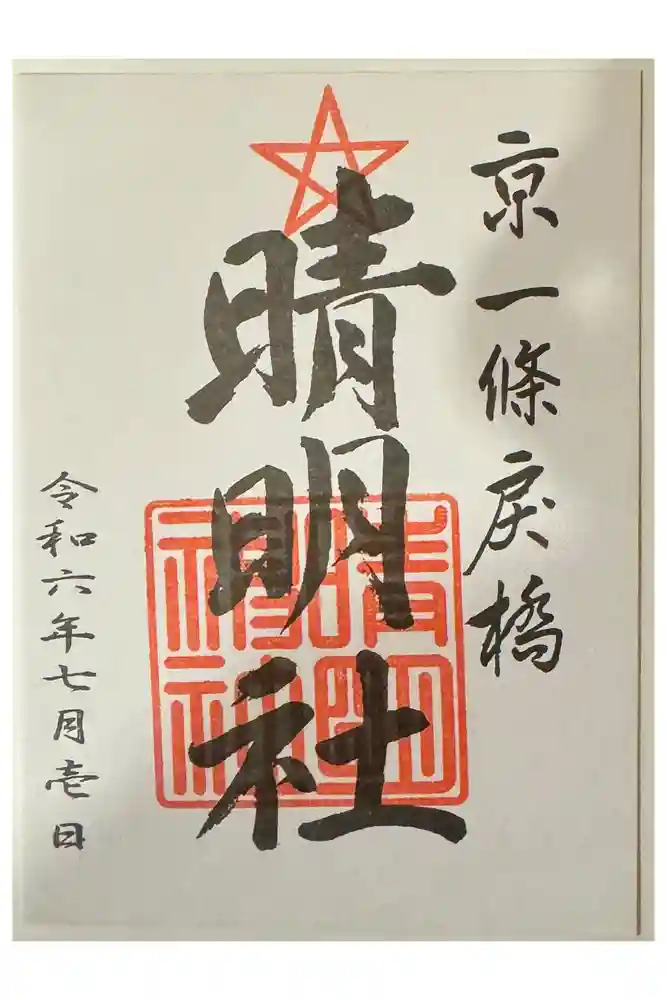 京一條戻橋
晴明社
令和六年七月壱日